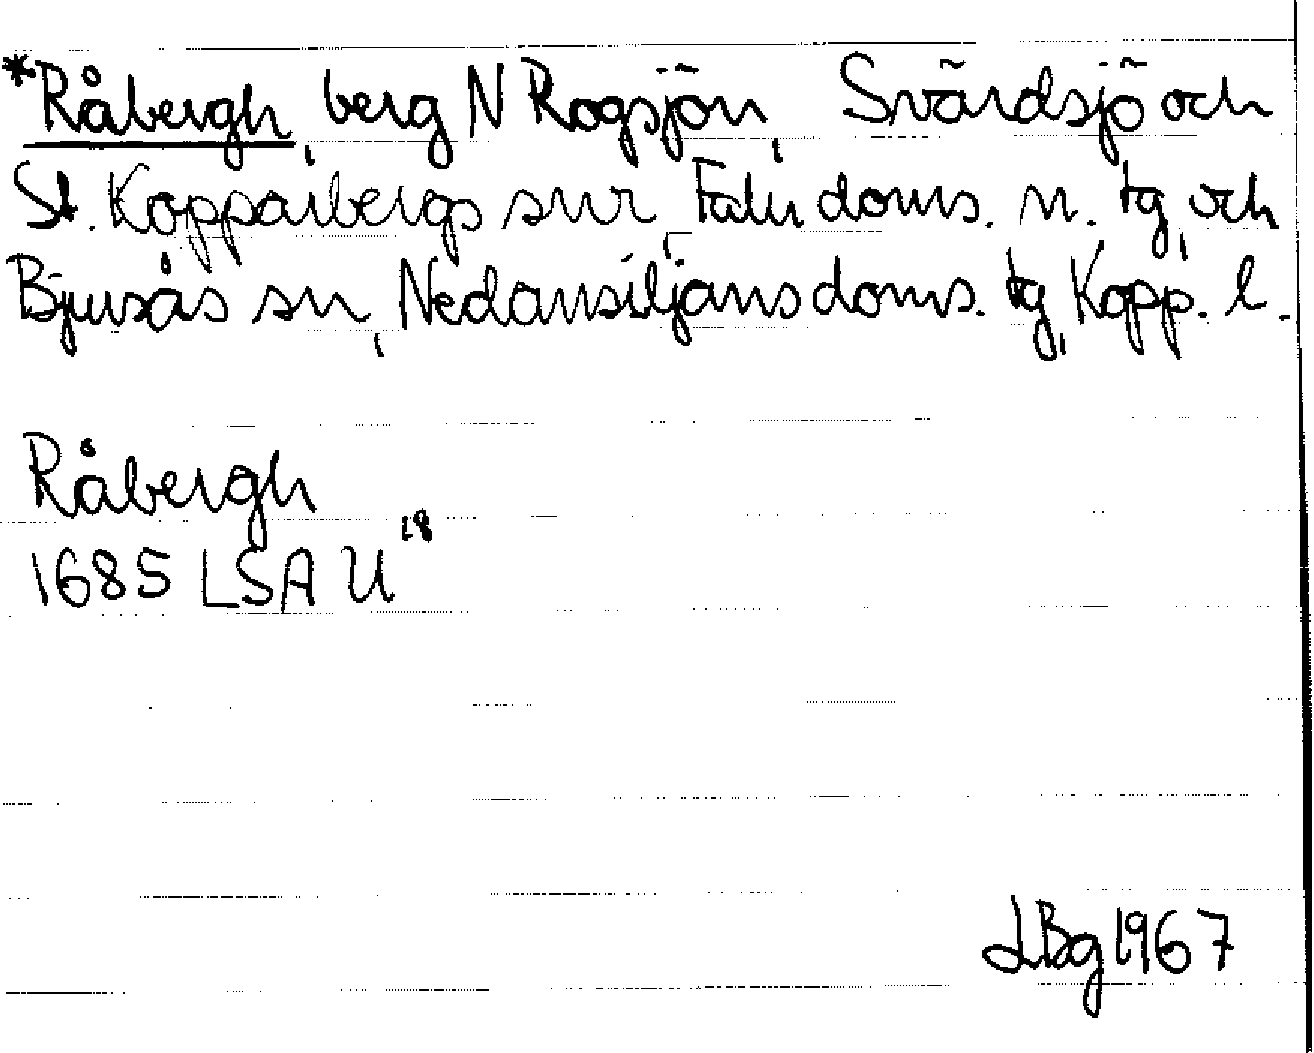 *Råbergh, berg N Rogsjön, Svärdsjö och
St. Kopparbergs snr, Falu doms. n. tg, och
Bjursås sn, Nedansiljans doms. tg, Kopp. l.
Råbergh
1685 LSA U 18
LBg 1967